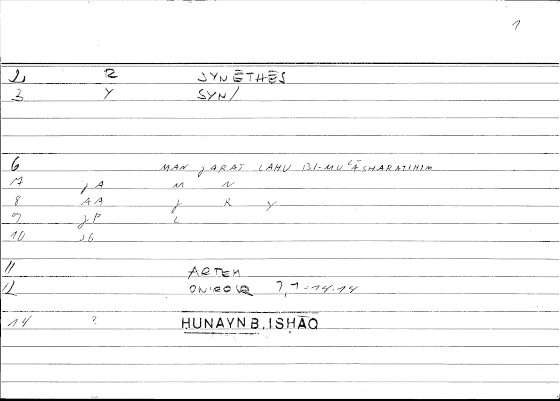 1
2 R SYNĒTHĒS
3 Y SYN/
6 MAN JARAT LAHU BI-MUʿĀSHARATIHIM
7 JA M N
8 AA J R Y
9 JP L
10 S6
11 ARTEM
12 ONIROCR 7,1-14.14
14 ? HUNAYN B. ISHĀQ